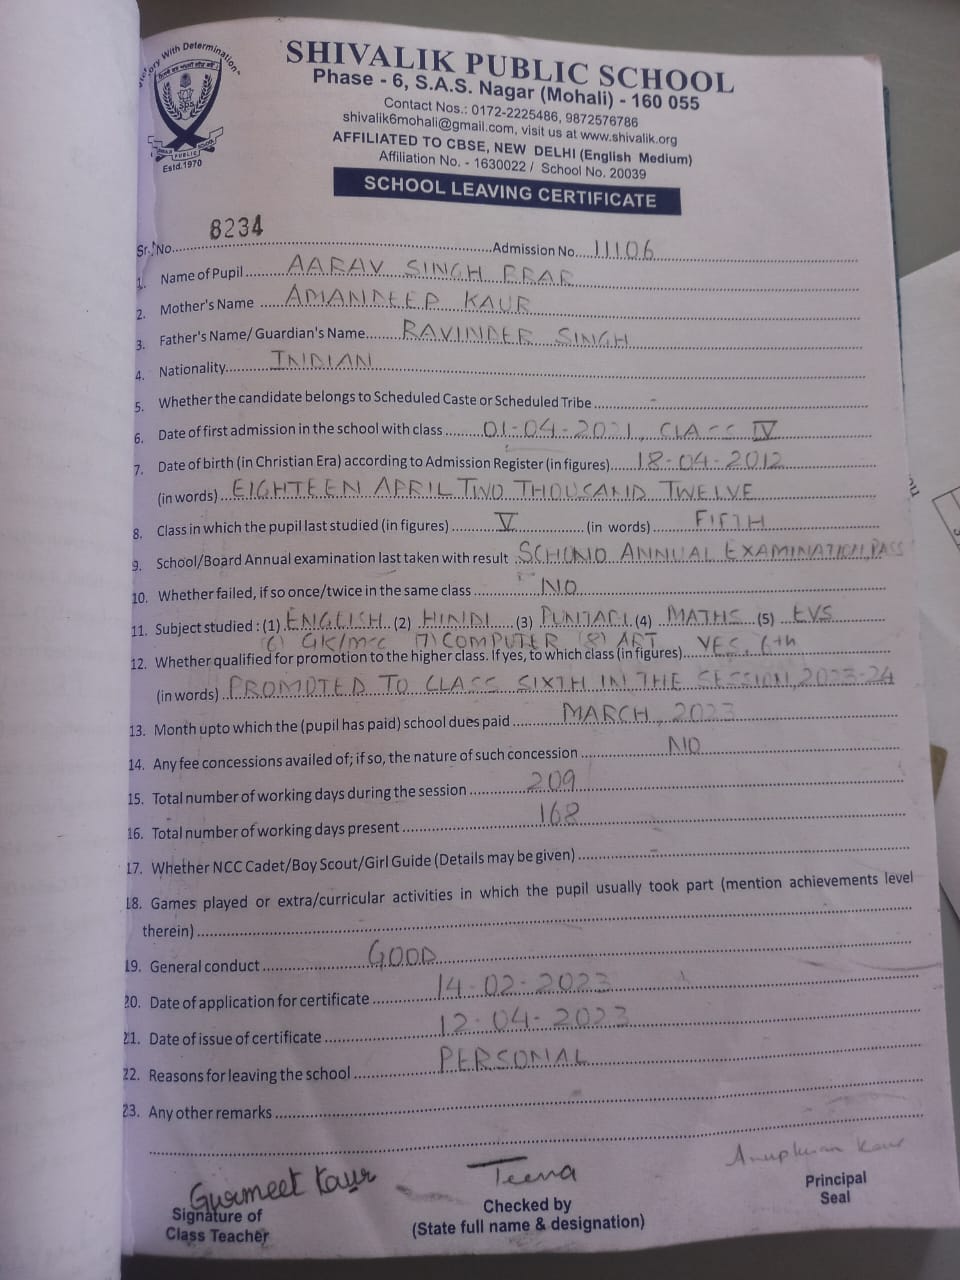 Victory With Determination
Estd.1970
SHIVALIK PUBLIC SCHOOL
Phase - 6, S.A.S. Nagar (Mohali) - 160 055
Contact Nos.: 0172-2225486, 9872576786
shivalik6mohali@gmail.com, visit us at www.shivalik.org
AFFILIATED TO CBSE, NEW DELHI (English Medium)
Affiliation No. - 1630022 / School No. 20039
SCHOOL LEAVING CERTIFICATE
Sr. No. 8234 Admission No. 11106
1. Name of Pupil AARAV SINGH BRAR
2. Mother's Name AMANDEEP KAUR
3. Father's Name/ Guardian's Name RAVINDER SINGH
4. Nationality INDIAN
5. Whether the candidate belongs to Scheduled Caste or Scheduled Tribe -
6. Date of first admission in the school with class 01-04-2021, CLASS IV
7. Date of birth (in Christian Era) according to Admission Register (in figures) 18-04-2012
(in words) EIGHTEEN APRIL TWO THOUSAND TWELVE
8. Class in which the pupil last studied (in figures) V (in words) FIFTH
9. School/Board Annual examination last taken with result ANNUAL EXAMINATION, PASS
10. Whether failed, if so once/twice in the same class NO
11. Subject studied : (1) ENGLISH (2) HINDI (3) PUNJABI (4) MATHS (5) EVS
(6) GK/MSC (7) COMPUTER (8) ART
12. Whether qualified for promotion to the higher class. If yes, to which class (in figures) YES, 6th
(in words) PROMOTED TO CLASS SIXTH IN THE SESSION, 2023-24
13. Month upto which the (pupil has paid) school dues paid MARCH, 2023
14. Any fee concessions availed of; if so, the nature of such concession NO
15. Total number of working days during the session 209
16. Total number of working days present 168
17. Whether NCC Cadet/Boy Scout/Girl Guide (Details may be given) -
18. Games played or extra/curricular activities in which the pupil usually took part (mention achievements level
therein)
19. General conduct GOOD
20. Date of application for certificate 14-02-2023
21. Date of issue of certificate 12-04-2023
22. Reasons for leaving the school PERSONAL
23. Any other remarks
Gurmeet Kaur Teena Kaur
Signature of Checked by Principal
Class Teacher (State full name & designation) Seal